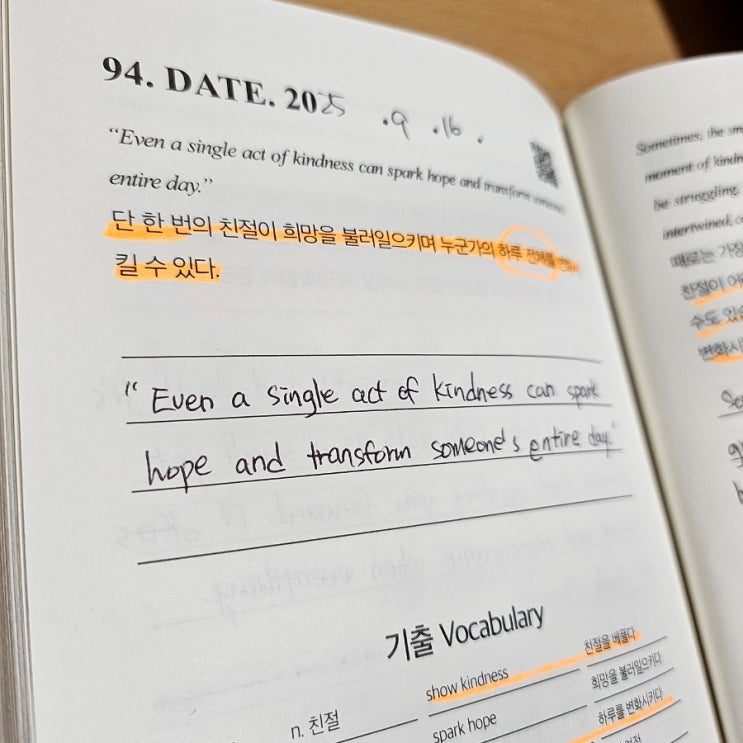 94. DATE. 2025 .9 .16 .
“Even a single act of kindness can spark hope and transform someone's
entire day.”
단 한 번의 친절이 희망을 불러일으키며 누군가의 하루 전체를
킬 수 있다.
“Even a single act of kindness can spark
hope and transform someone's entire day.”
기출 Vocabulary
n. 친절
show kindness
친절을 베풀다
spark hope
희망을 불러일으키다
하루를 변화시키다
Sometimes, the sm
moment of kindn
be struggling.
intertwined, c
때로는 가장
친절이 어
수도 있
변화시